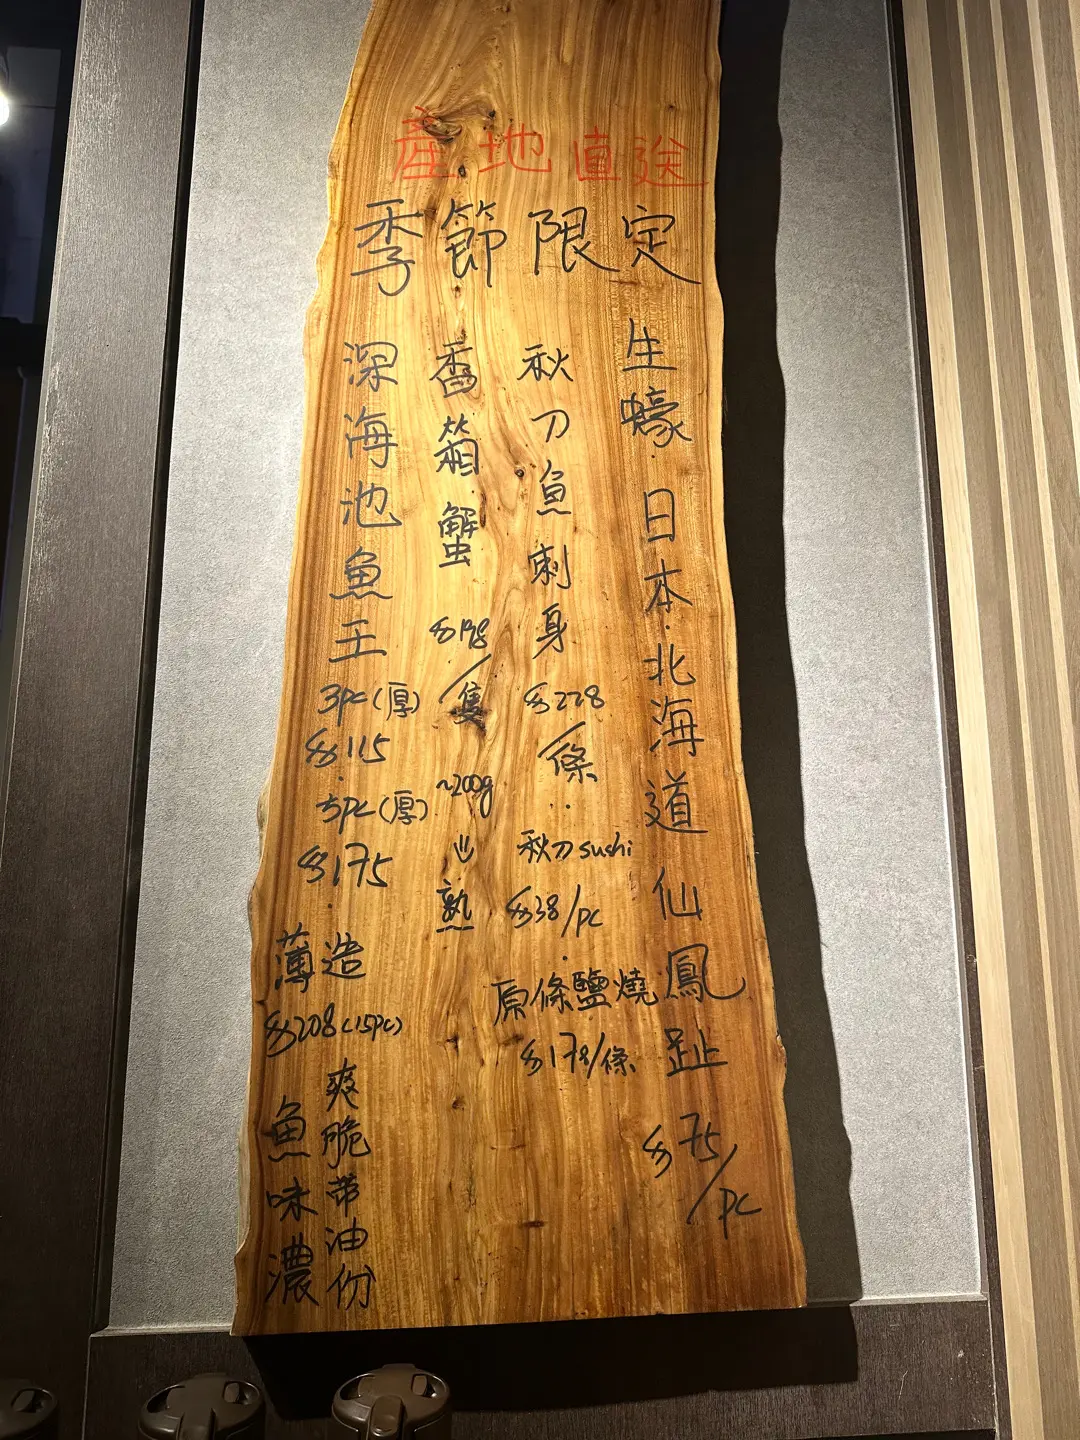 產地直送
季節限定
生蠔.日本.北海道仙鳳趾
$75/pc
秋刀魚刺身
$228/條
秋刀sushi
$38/pc
原條鹽燒
$178/條
香箱蟹
$198/隻
~200g
熟
深海池魚王
3pc(厚)
$115
5pc(厚)
$175
薄造
$208(15pc)
爽脆帶油份
魚味濃